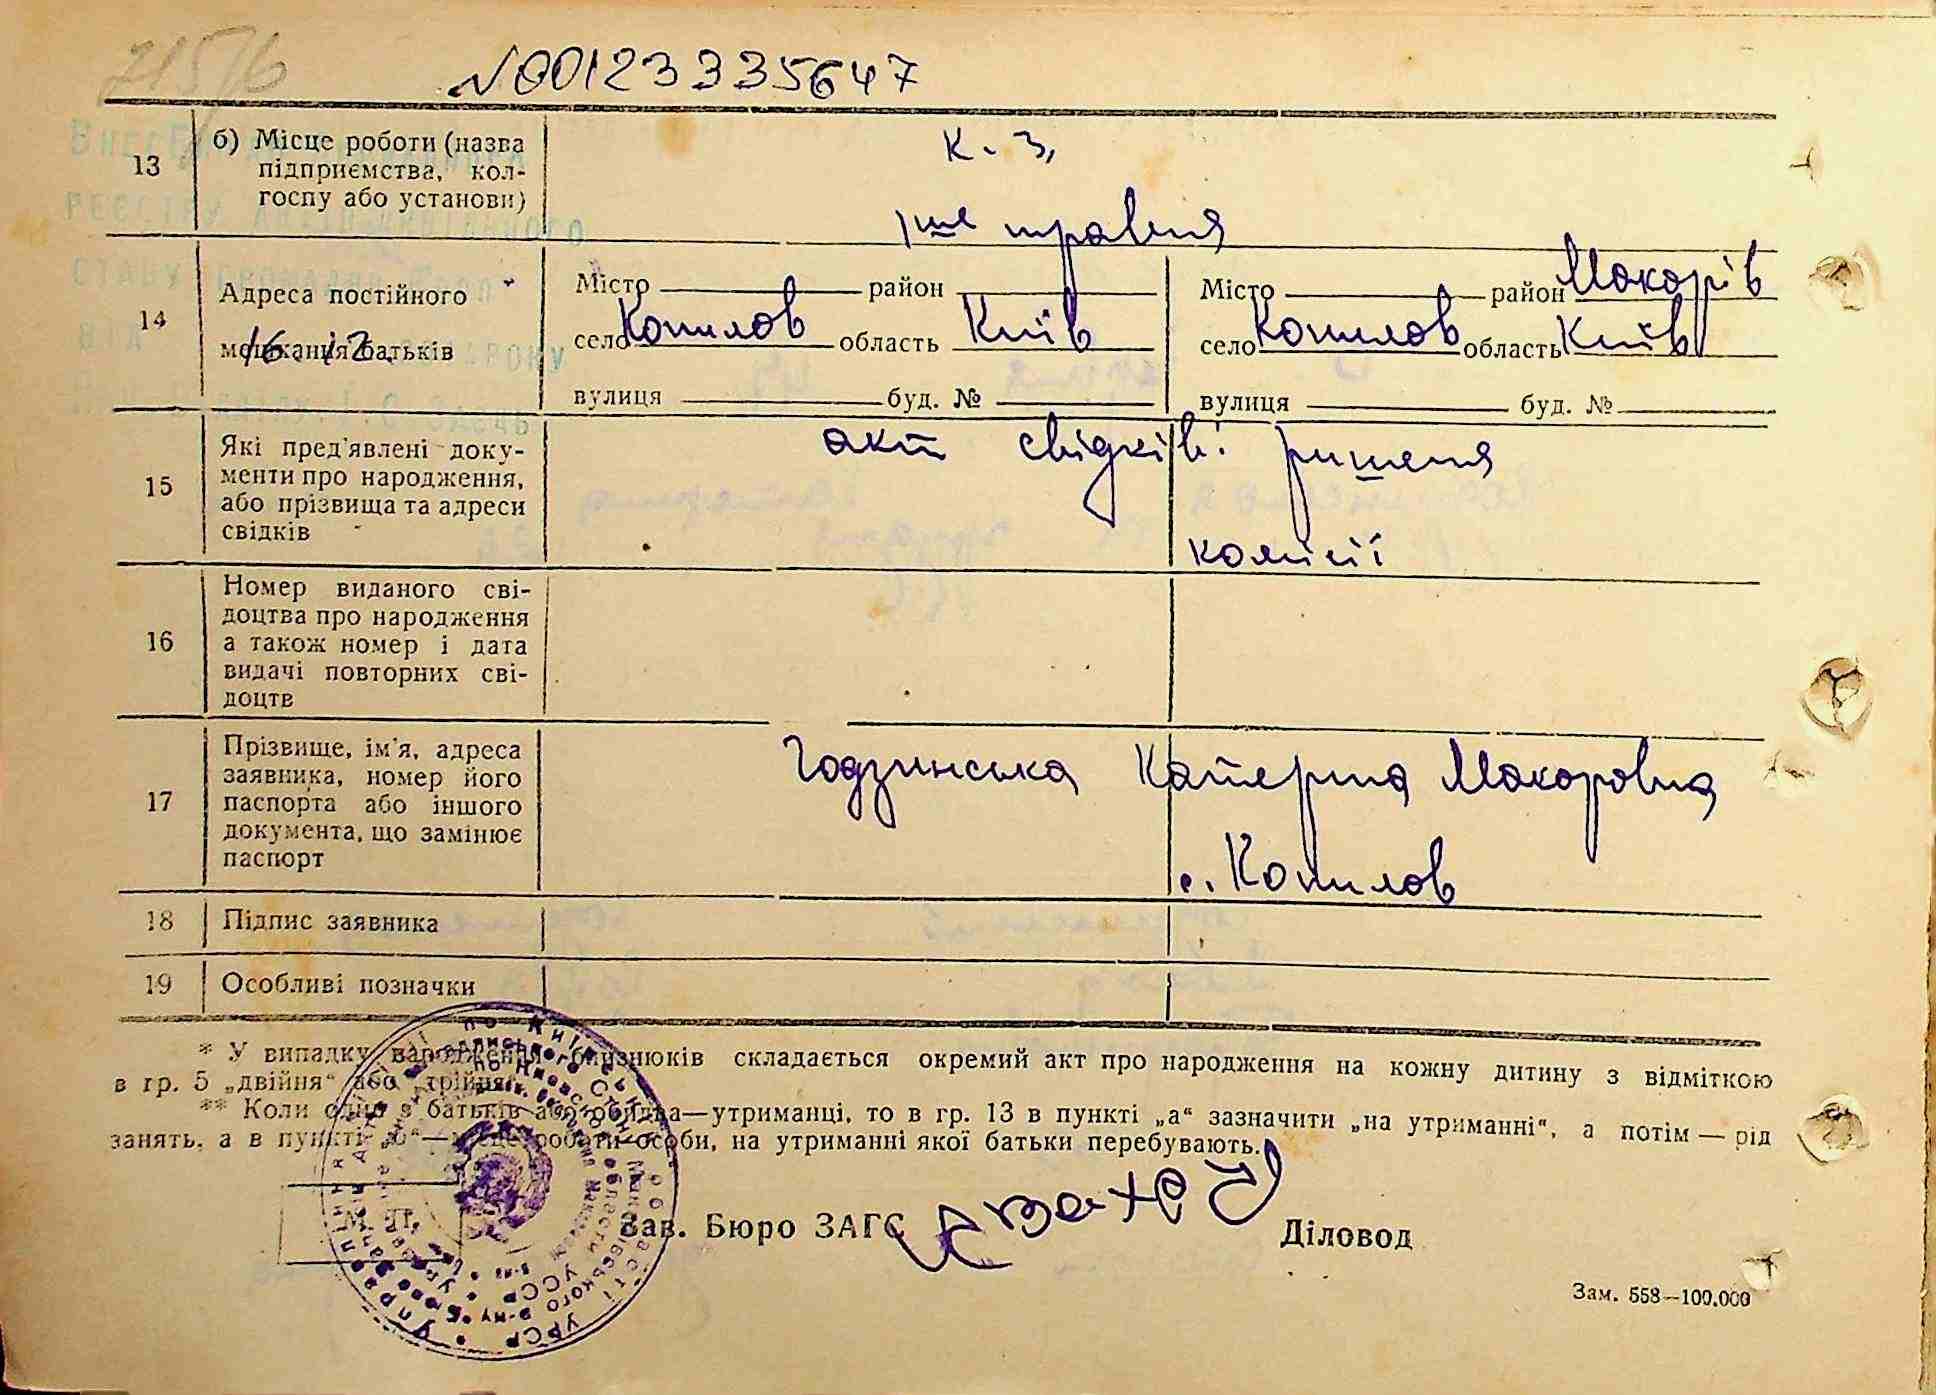 71576
№00123335647
13
б) Місце роботи (назва
підприємства, кол-
госпу або установи)
к. з.
1ше травня
14
Адреса постійного
мешкання батьків
16. 12.
Місто район
село Копилов область Київ
вулиця буд. №
Місто район Макарів
село Копилов область Київ
вулиця буд. №
15
Які пред'явлені доку-
менти про народження,
або прізвища та адреси
свідків
акт свідків: ришення
комісії
16
Номер виданого сві-
доцтва про народження
а також номер і дата
видачі повторних сві-
доцтв
17
Прізвище, ім'я, адреса
заявника, номер його
паспорта або іншого
документа, що замінює
паспорт
Годзинська Катерина Макаровна
с. Копилов
18
Підпис заявника
19
Особливі позначки
* У випадку народження близнюків складається окремий акт про народження на кожну дитину з відміткою
в гр. 5 „двійня“ або „трійня“.
** Коли один з батьків або обидва—утриманці, то в гр. 13 в пункті „а“ зазначити „на утриманні“, а потім — рід
занять, а в пункті „б“—місце роботи особи, на утриманні якої батьки перебувають.
М. П.
Зав. Бюро ЗАГС
Діловод
Зам. 558—100.000